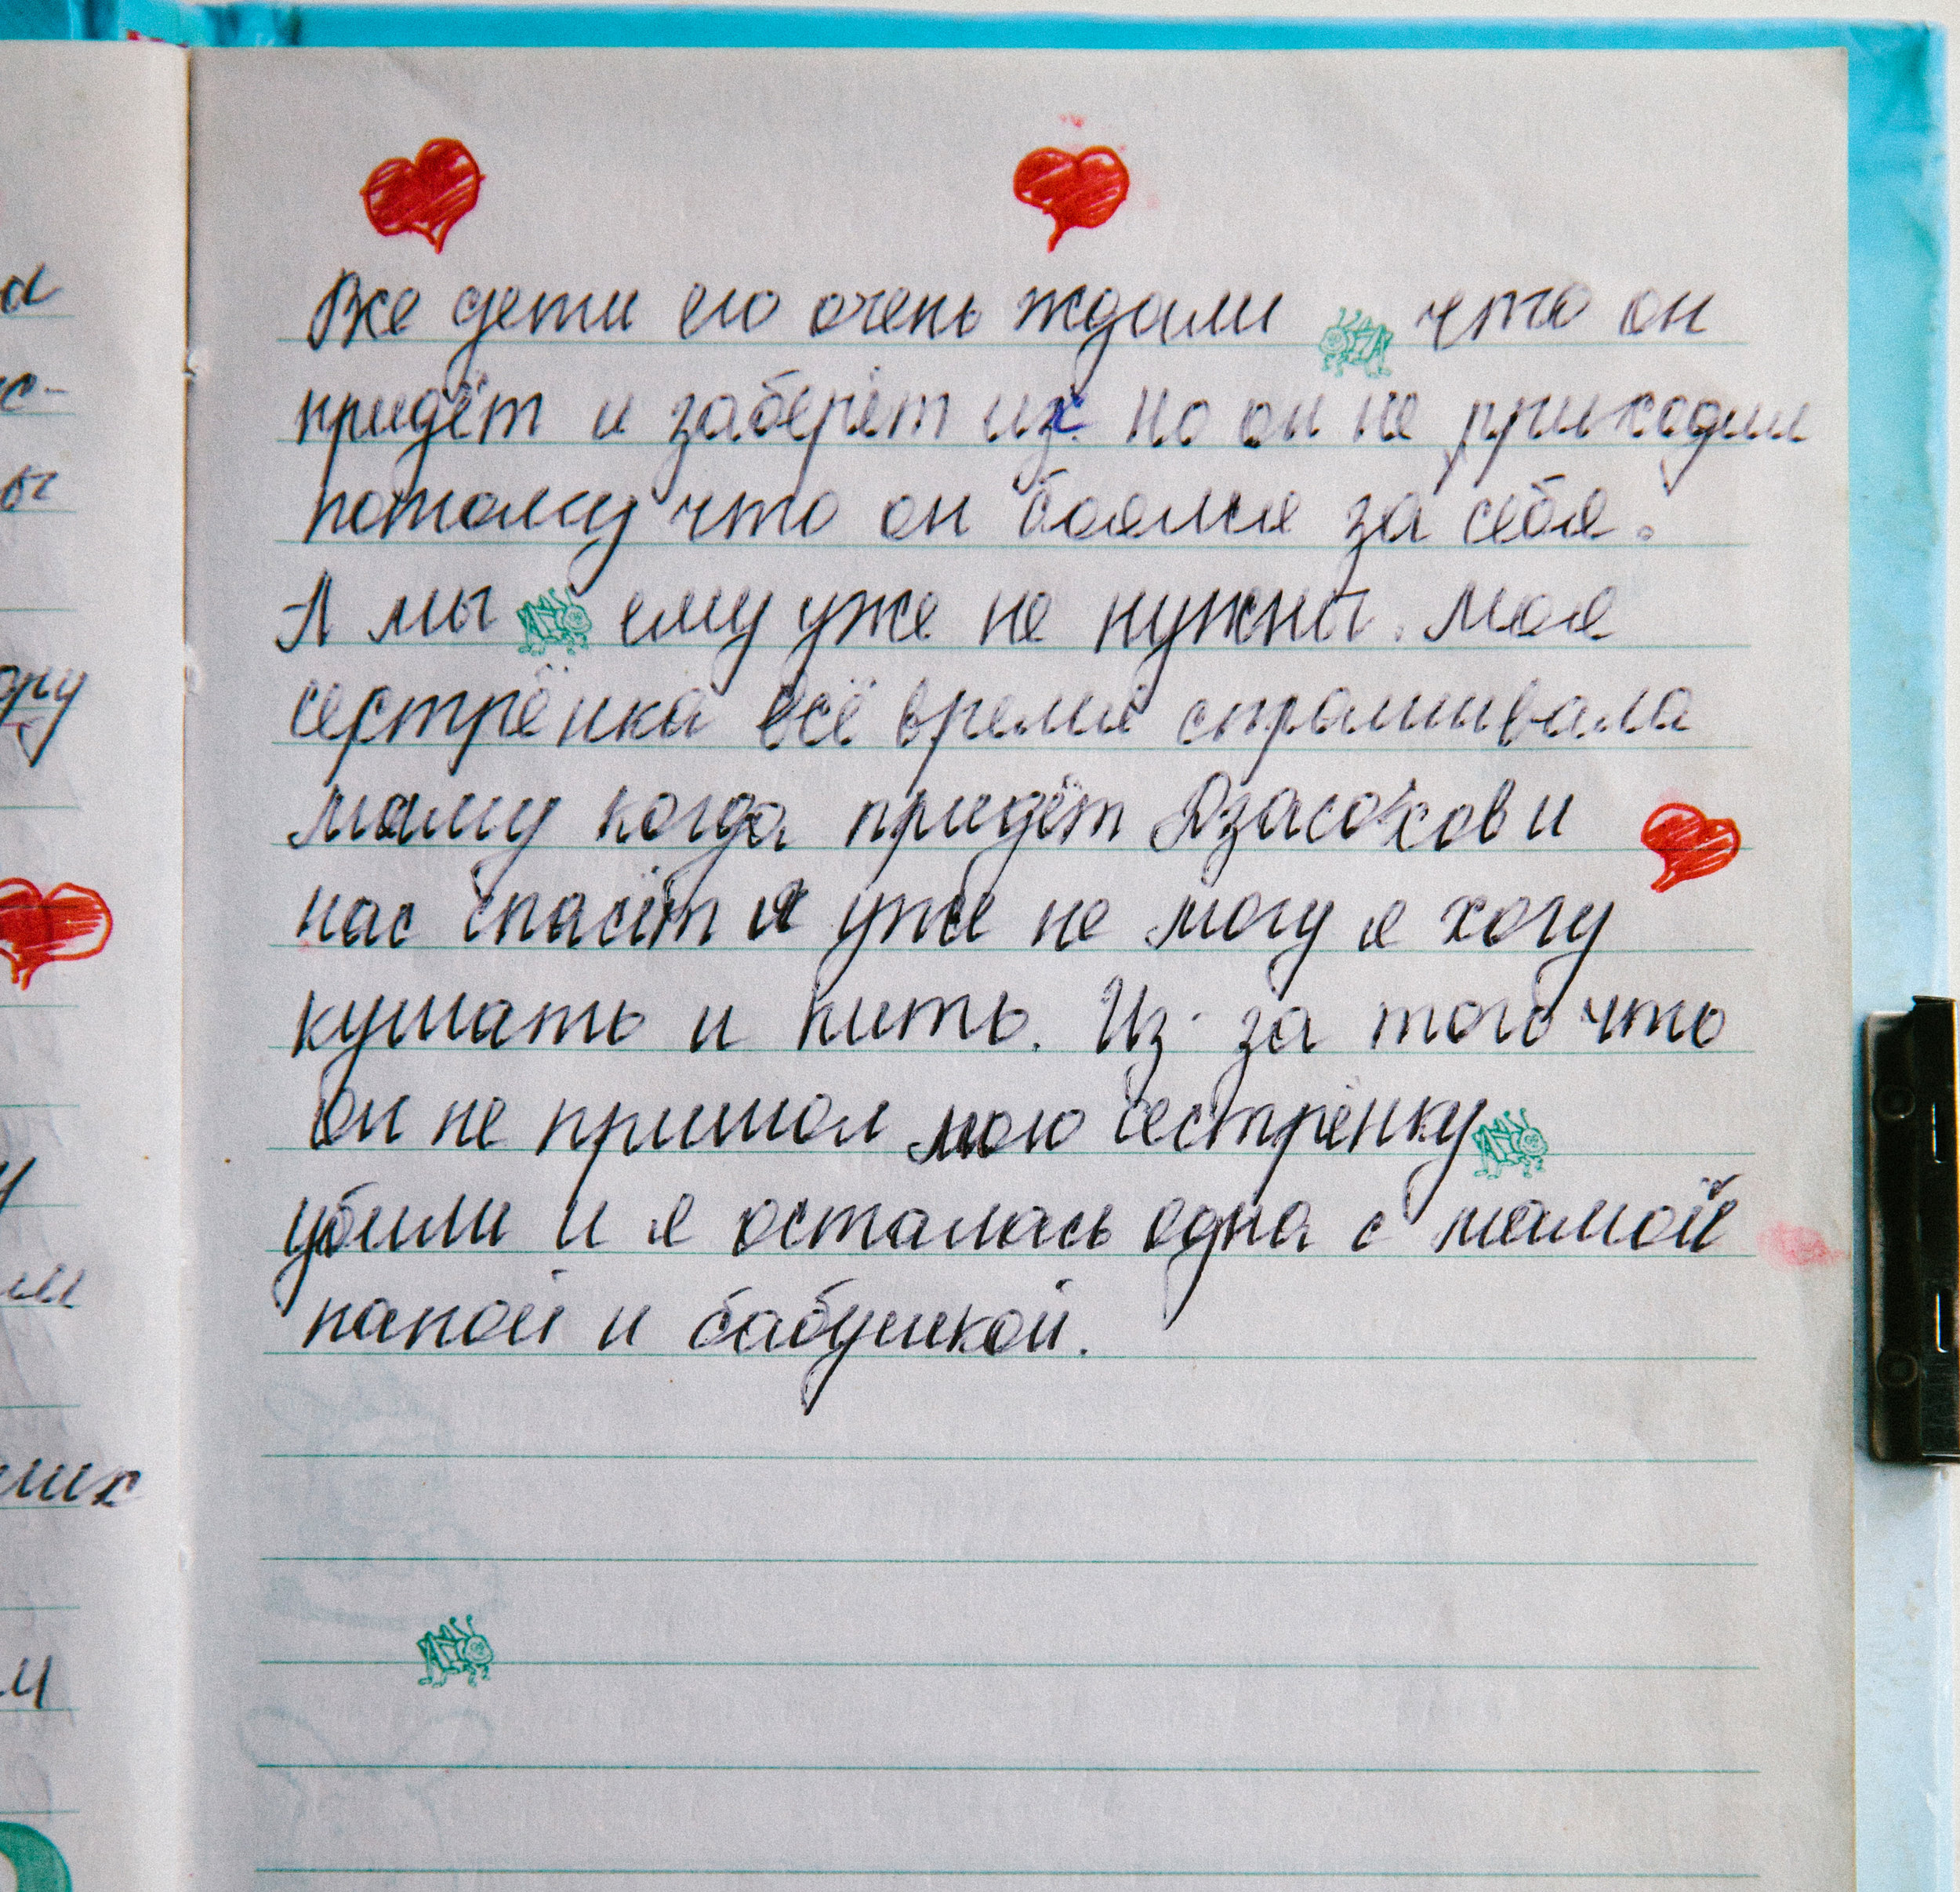 Все дети его очень ждали что он
придёт и заберёт их. Но он не приходил
потому что он боялся за себя.
А мы ему уже не нужны. Моя
сестрёнка всё время спрашивала
маму когда придёт Дзасохов и
нас спасёт я уже не могу я хочу
кушать и пить. Из-за того что
он не пришол мою сестрёнку
убили и я осталась одна с мамой
папой и бабушкой.